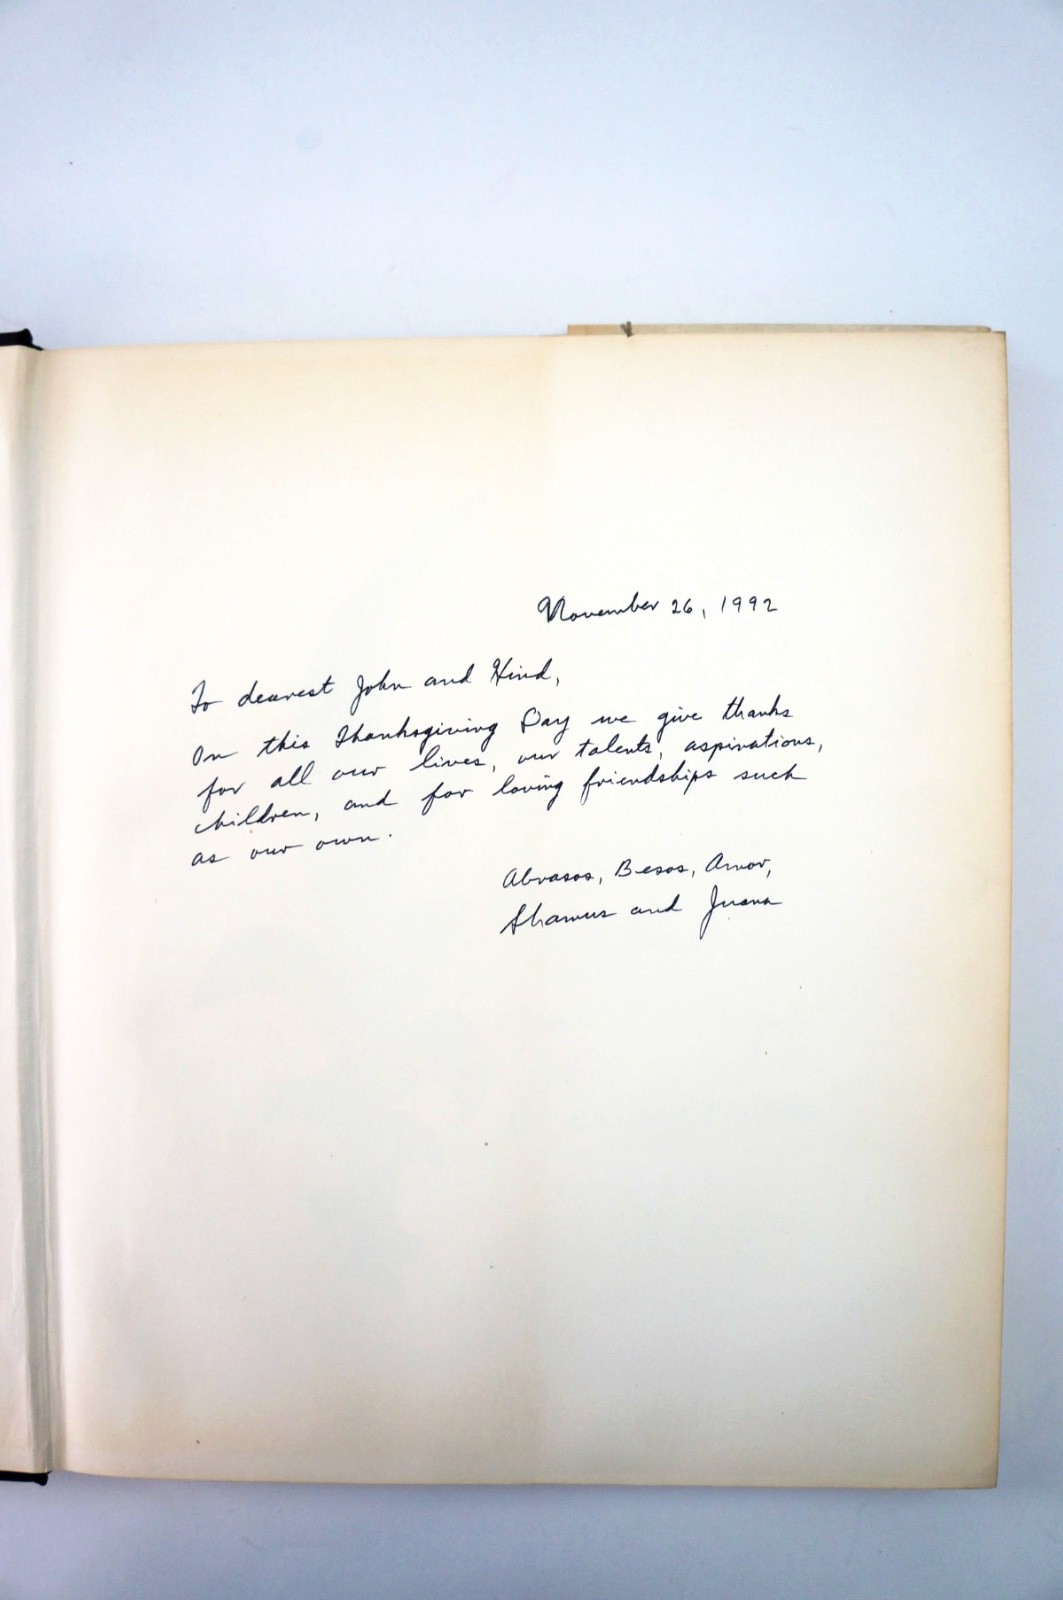 November 26, 1992
To dearest John and Hind,
On this Thanksgiving Day we give thanks
for all our lives, our talents, aspirations,
children, and for loving friendships such
as our own.
Abrasos, Besos, Amor,
Shamus and Juana